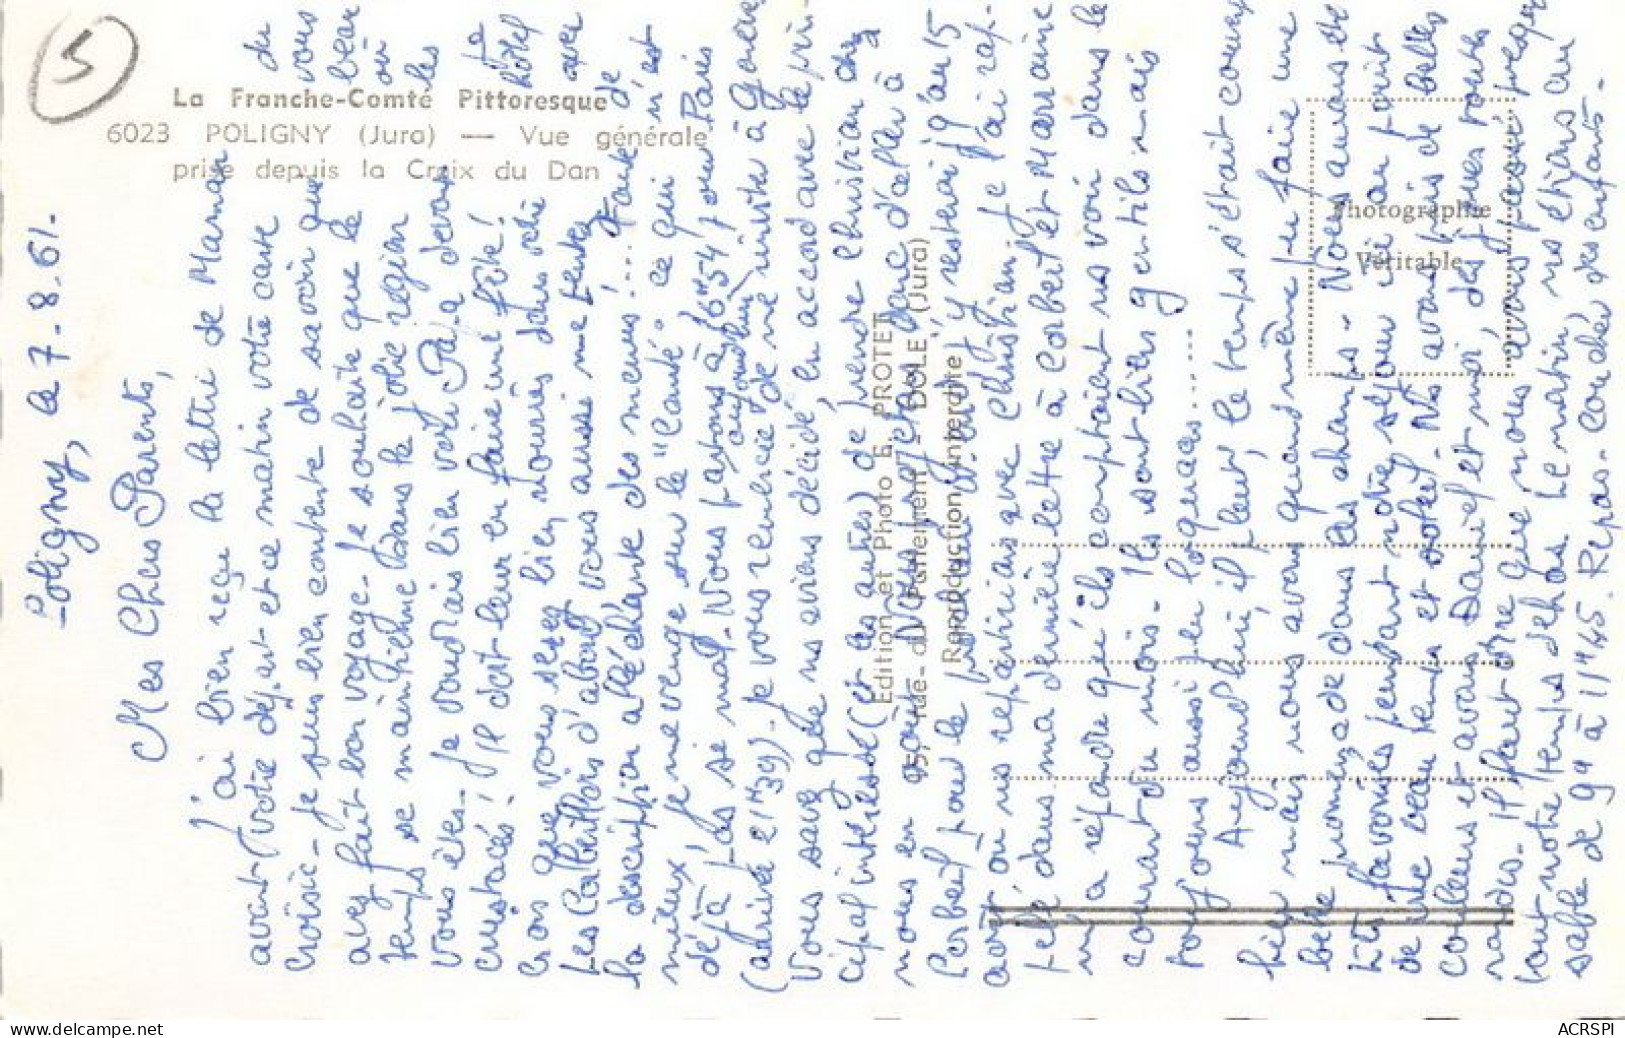 5
La Franche-Comté Pittoresque
6023 POLIGNY (Jura) — Vue générale
prise depuis la Croix du Dan
Edition et Photo E. PROTET
95, rue du Parlement - DOLE (Jura)
Reproduction interdite
Photographie
Véritable
Poligny, le 7-8-61.
Mes Chers Parents,
J'ai bien reçu la lettre de Maman du
avant votre départ et ce matin votre carte
Croisic - Je suis bien contente de savoir que vous
avez fait bon voyage - Je souhaite que le beau
temps se maintienne dans la jolie région où
vous êtes - Je voudrais bien voir Papa devant les
crustacés ! Il doit leur en faire une fête ! Je
crois que vous serez bien nourris dans votre hôtel
Les d'abord vous aussi me tentez avec
la description alléchante des menus .... Faute de
mieux, je me venge sur le "Comté" ce qui n'est
déjà pas si mal - Nous partons à 16H54 pour Paris
aujourd'hui
(arrivée 21H39) - Je vous remercie de me inviter à
Vous savez que ns avions décidé, en accord avec le prin-
cipal intéressé (et les autres) de prendre Christian chez
nous en août. Nous projetons donc d'aller à
Corbeil pour le et j'y resterai jqu'au 15
août où ns repartirons avec Christian, je l'ai rap-
pelé dans ma dernière lettre à Corbeil et Marraine
m'a répondu qu'ils comptaient ns voir dans le
courant du mois - Ils sont bien gentils mais
toujours aussi peu loquaces .....
Aujourd'hui, il pleut, le temps s'était couvert
hier mais nous avons quand même pu faire une
belle promenade dans les champs - Nous aurons été
très favorisés pendant notre séjour ici au point
de vue beau temps et soleil - Ns avons pris de belles
couleurs et avons Daniel et moi, des joues toutes
rondes. Il faut dire que nous avons passé presque
tout notre temps dehors. Le matin, ns étions au
sable de 9H à 11H45. Repas. Coucher des enfants.
ACRSPI
www.delcampe.net